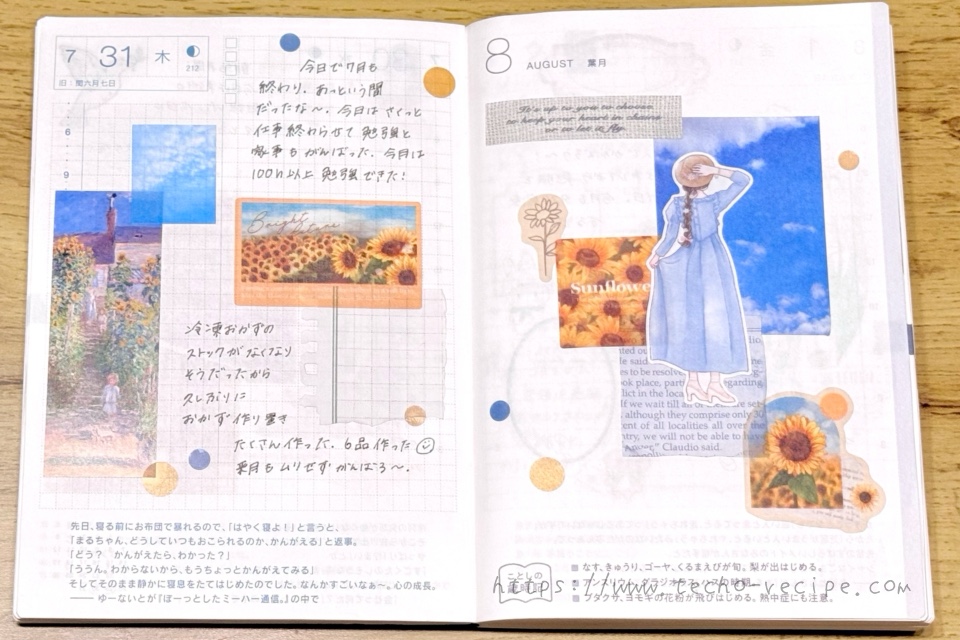 7 31 木
212
旧:閏六月七日
6
9
今日で7月も
終わり。あっという間
だったな〜。今日はさくっと
仕事終わらせて勉強と
家事もがんばった。今月は
100h以上勉強できた!
Bright
冷凍おかずの
ストックがなくなり
そうだったから
久しぶりに
おかず作り置き
たくさん作った。6品作った
葉月もムリせずがんばろ〜。
先日、寝る前にお布団で暴れるので、「はやく寝よ!」と言うと、
「まるちゃん、どうしていつもおこられるのか、かんがえる」と返事。
「どう? かんがえたら、わかった?」
「ううん。わからないから、もうちょっとかんがえてみる」
そしてそのまま静かに寝息をたてはじめたのでした。なんかすごいなぁ〜。心の成長。
── ゆーないとが『ぼーっとしたミーハー通信。』の中で
8 AUGUST 葉月
It's up to you to choose
to keep your heart in chains
or to let it fly.
Sunflowe
nted ou
le said
es to be resolve
ook place, parti regarding
lict in the local
If we wait till all are set-
although they comprise only 30
cent of all localities all over the
ntry, we will not be able to have
Claudio said.
ことしの
■ なす、きゅうり、ゴーヤ、くるまえびが旬。梨が出はじめる。
■ ブタクサ、ヨモギの花粉が飛びはじめる。熱中症にも注意。
https://www.techo-recipe.com